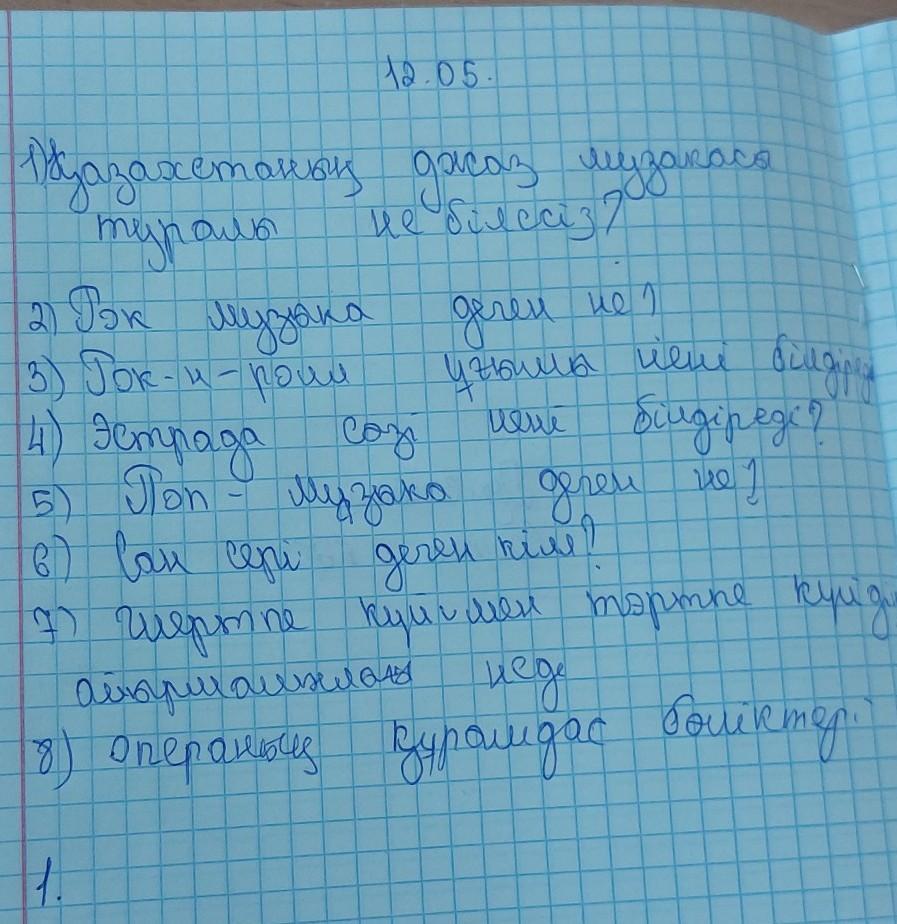 12.05.
1) Қазақстаның джаз музакасы
туралы не білесіз?
2) Рок музыка деген не?
3) Рок-н-ролл ұғымы нені білдіреді
4) Эстрада сөзі нені білдіреді?
5) Поп-музыка деген не?
6) Сал сері деген кім?
7) Шертпе күймен төртпе күйд
айырмашылығы неде
8) Операның құрамдас бөліктері
1.